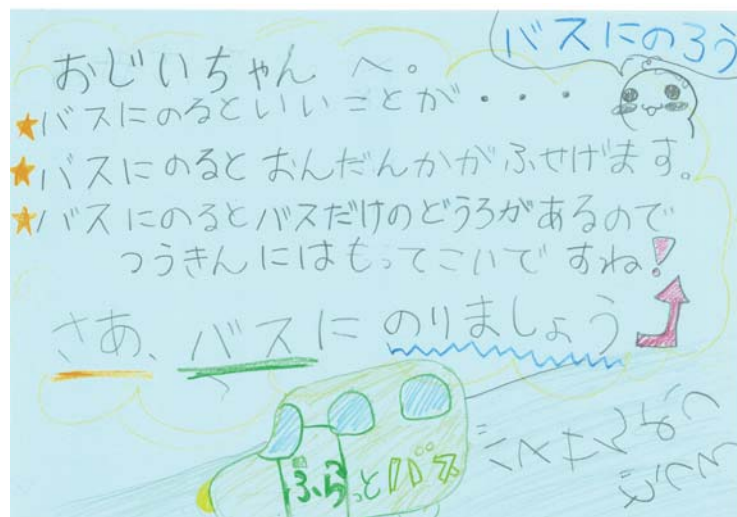 バスにのろう
おじいちゃん へ。
★バスにのるといいことが・・・
★バスにのると おんだんかが ふせげます。
★バスにのるとバスだけのどうろがあるので
つうきんにはもってこいで すね!
さあ、バスに のりましょう
ふらっとバス